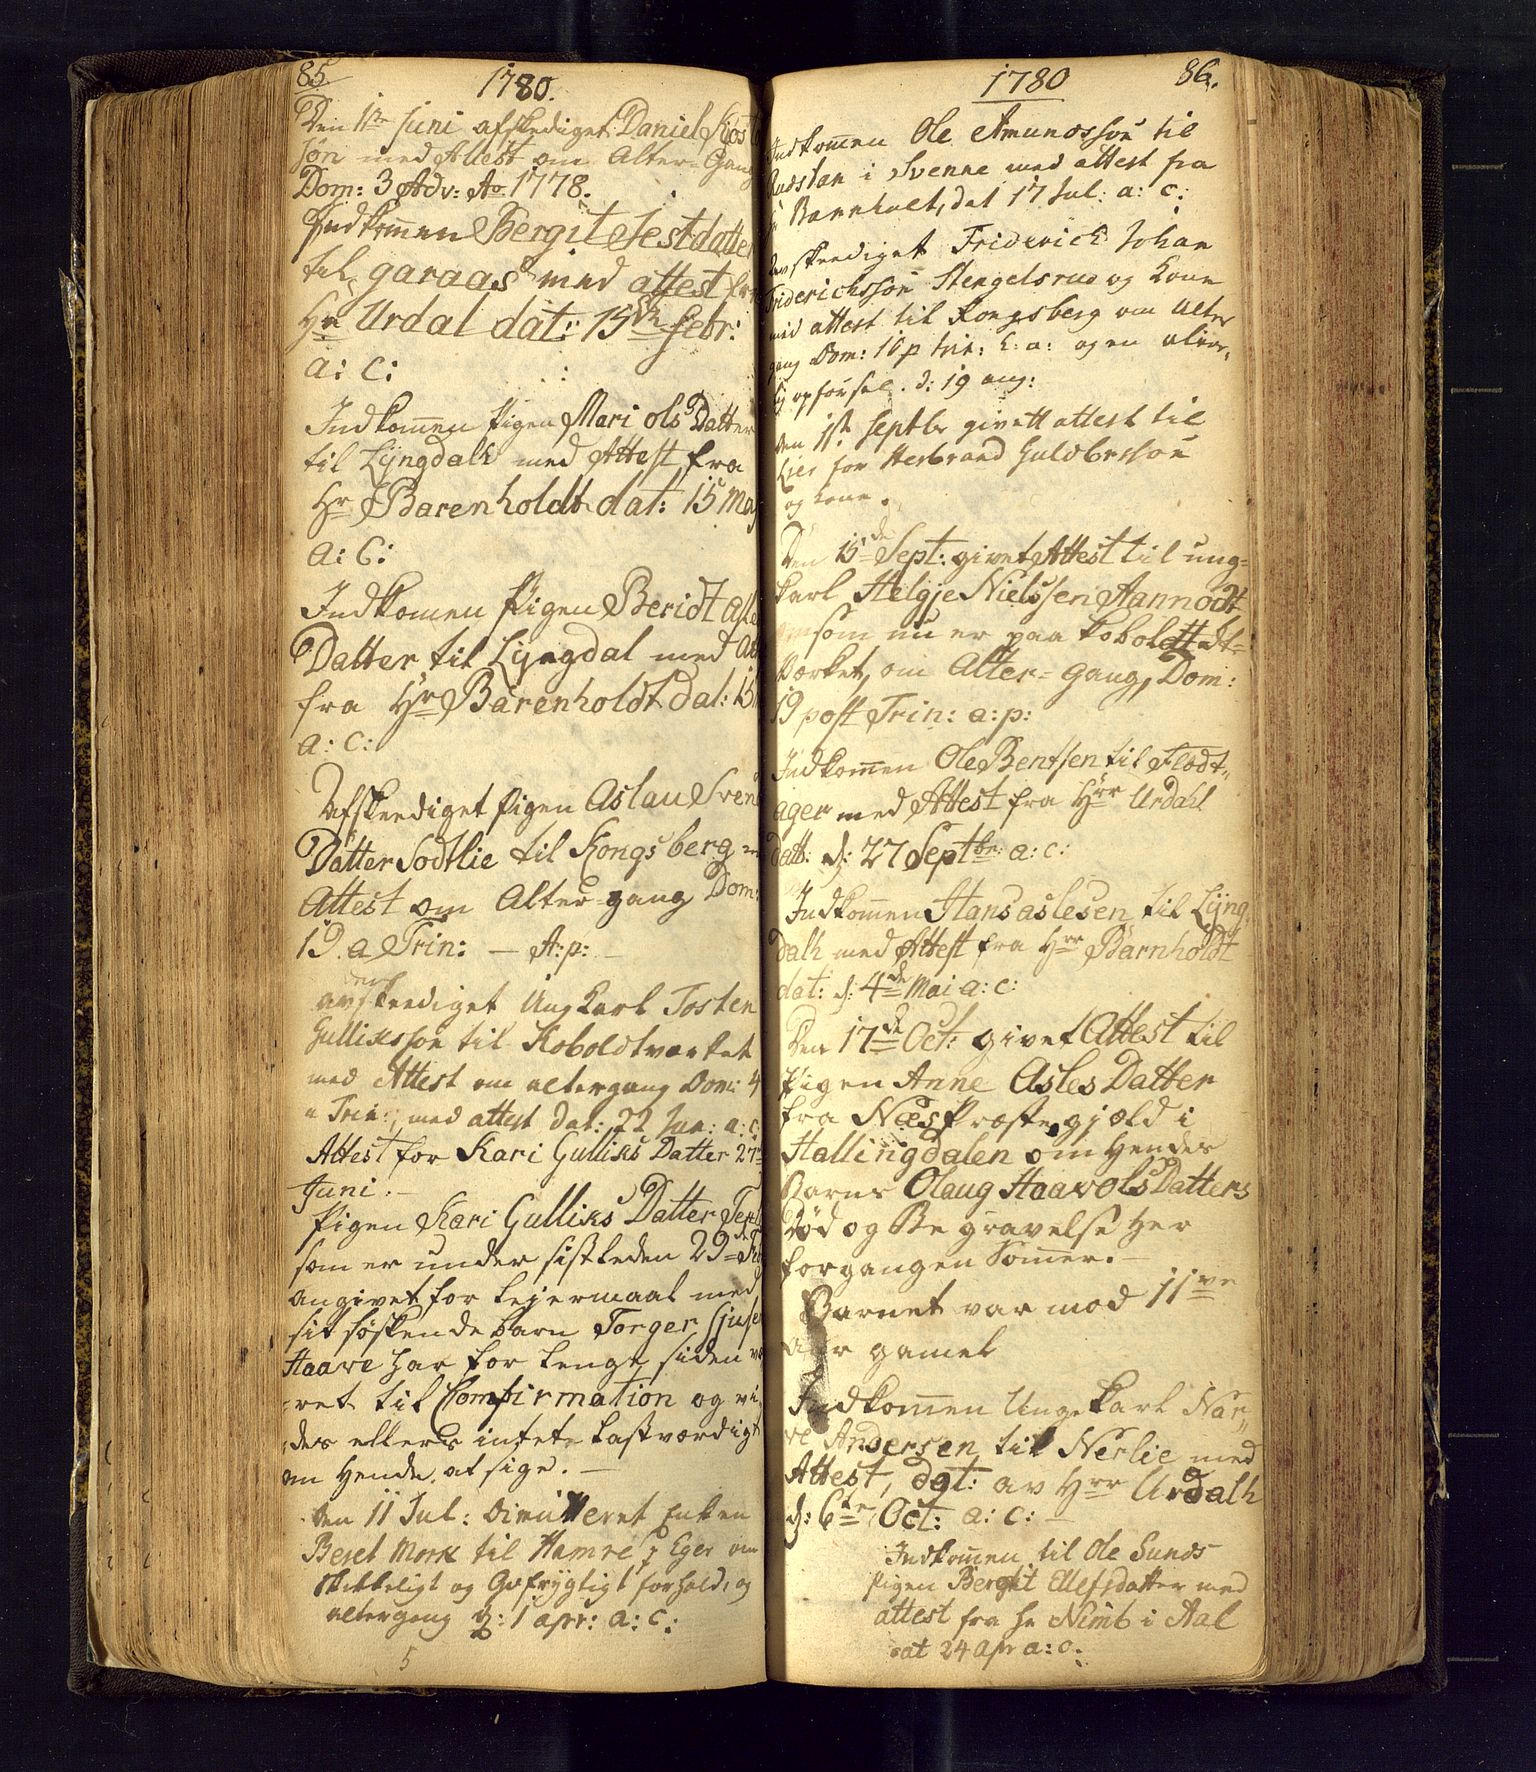 85
1780.
Den 1ste Juni afskediget Daniel Kios
søn med Attest om Alter-Gang
Dom: 3 Adv: Ao 1778.
Indkom̄en Bergit Sestdatter
til garaas med attest fra
Hr Urdal dat: 15de Febr:
a: c:
Indkom̄en Pigen Mari Ols Datter
til Lÿngdalh med Attest fra
Hr Barenholdt dat: 15 May
a: C:
Indkomen Pigen Beridt Asle
Datter til Lÿngdal med Att
fra Hr Barenholdt dat: 15
a: c:
Afskeediget Pigen Aslau Svens
Datter Sodtlie til Kongsberg
Attest om Alter-gang Dom:
19. a Trin: — A: p: —
avskeediget Ung Karl Tosten
Gulliksson til Koboldtværket
med Attest om altergang Dom: 4
a Trin:, med attest dat: 22 Jun: a: c:
Attest for Kari Gulliks Datter 27
Juni. —
Pigen Kari Gulliks Datter
som er under sistleden 29de
angivet for Lejermaal med
sit Søskendebarn Torger
Haave har for lenge siden væ
ret til Comfirmation og vi
des ellers intet lastværdigt
om Hende at sige. —
Den 11 Jul: Dimitteret Enken
Beret Mork til Hamre p Eger om
skikkeligt og Gufrygtigt forhold, og
altergang D: 1 apr: a: c:
5
1780
86.
Indkom̄en Ole Amundssøn til
i Svenne med attest fra
Hr Barnholt, dat 17 Jul: a: c:
Avskeediget Friderich Johan
Friderichssøn Stengelsrud og Kone
med attest til Kongsberg om Alter
gang Dom: 10 p trin: h: a: og en
opførsel. d: 19 aug:
Den 1ste Septbr givet attest til
Lier for Herbrand Guldbrssøn
og Kone.
Den 15de Sept: givet Attest til ung-
karl Helgje Nielssen Aannodt
som nu er paa Koboldt-
Værket, om Alter-Gang, Dom:
19 post Trin: a: p:
Indkom̄en Ole Bentsen til Flodt-
ager med Attest fra Hrr Urdahl
datt: d: 27 Septbr: a: c:
Indkom̄en Hans Aslesen til Lÿng-
dalh med Attest fra Hrr Barnholdt
dat: d: 4de Mai a: c:
Den 17de Oct: givet Attest til
Pigen Anne Asles Datter
fra Næs Præstegjæld i
Hallingdalen om Hendes
Barns Olaug Haavols Datters
Død og Begravelse her
forgangen Som̄er. —
Barnet var mod 11ve
aar gamel
Indkom̄en Ungekarl Nar-
ve Andersen til Nerlie med
Attest, dat: av Hrr Urdalh
d: 6te Oct: a: c: —
Indkom̄en til Ole Sunds
Pigen Bergit Ellefsdatter med
attest fra Hr Nimb i Aal
dat 24 apr a: c: